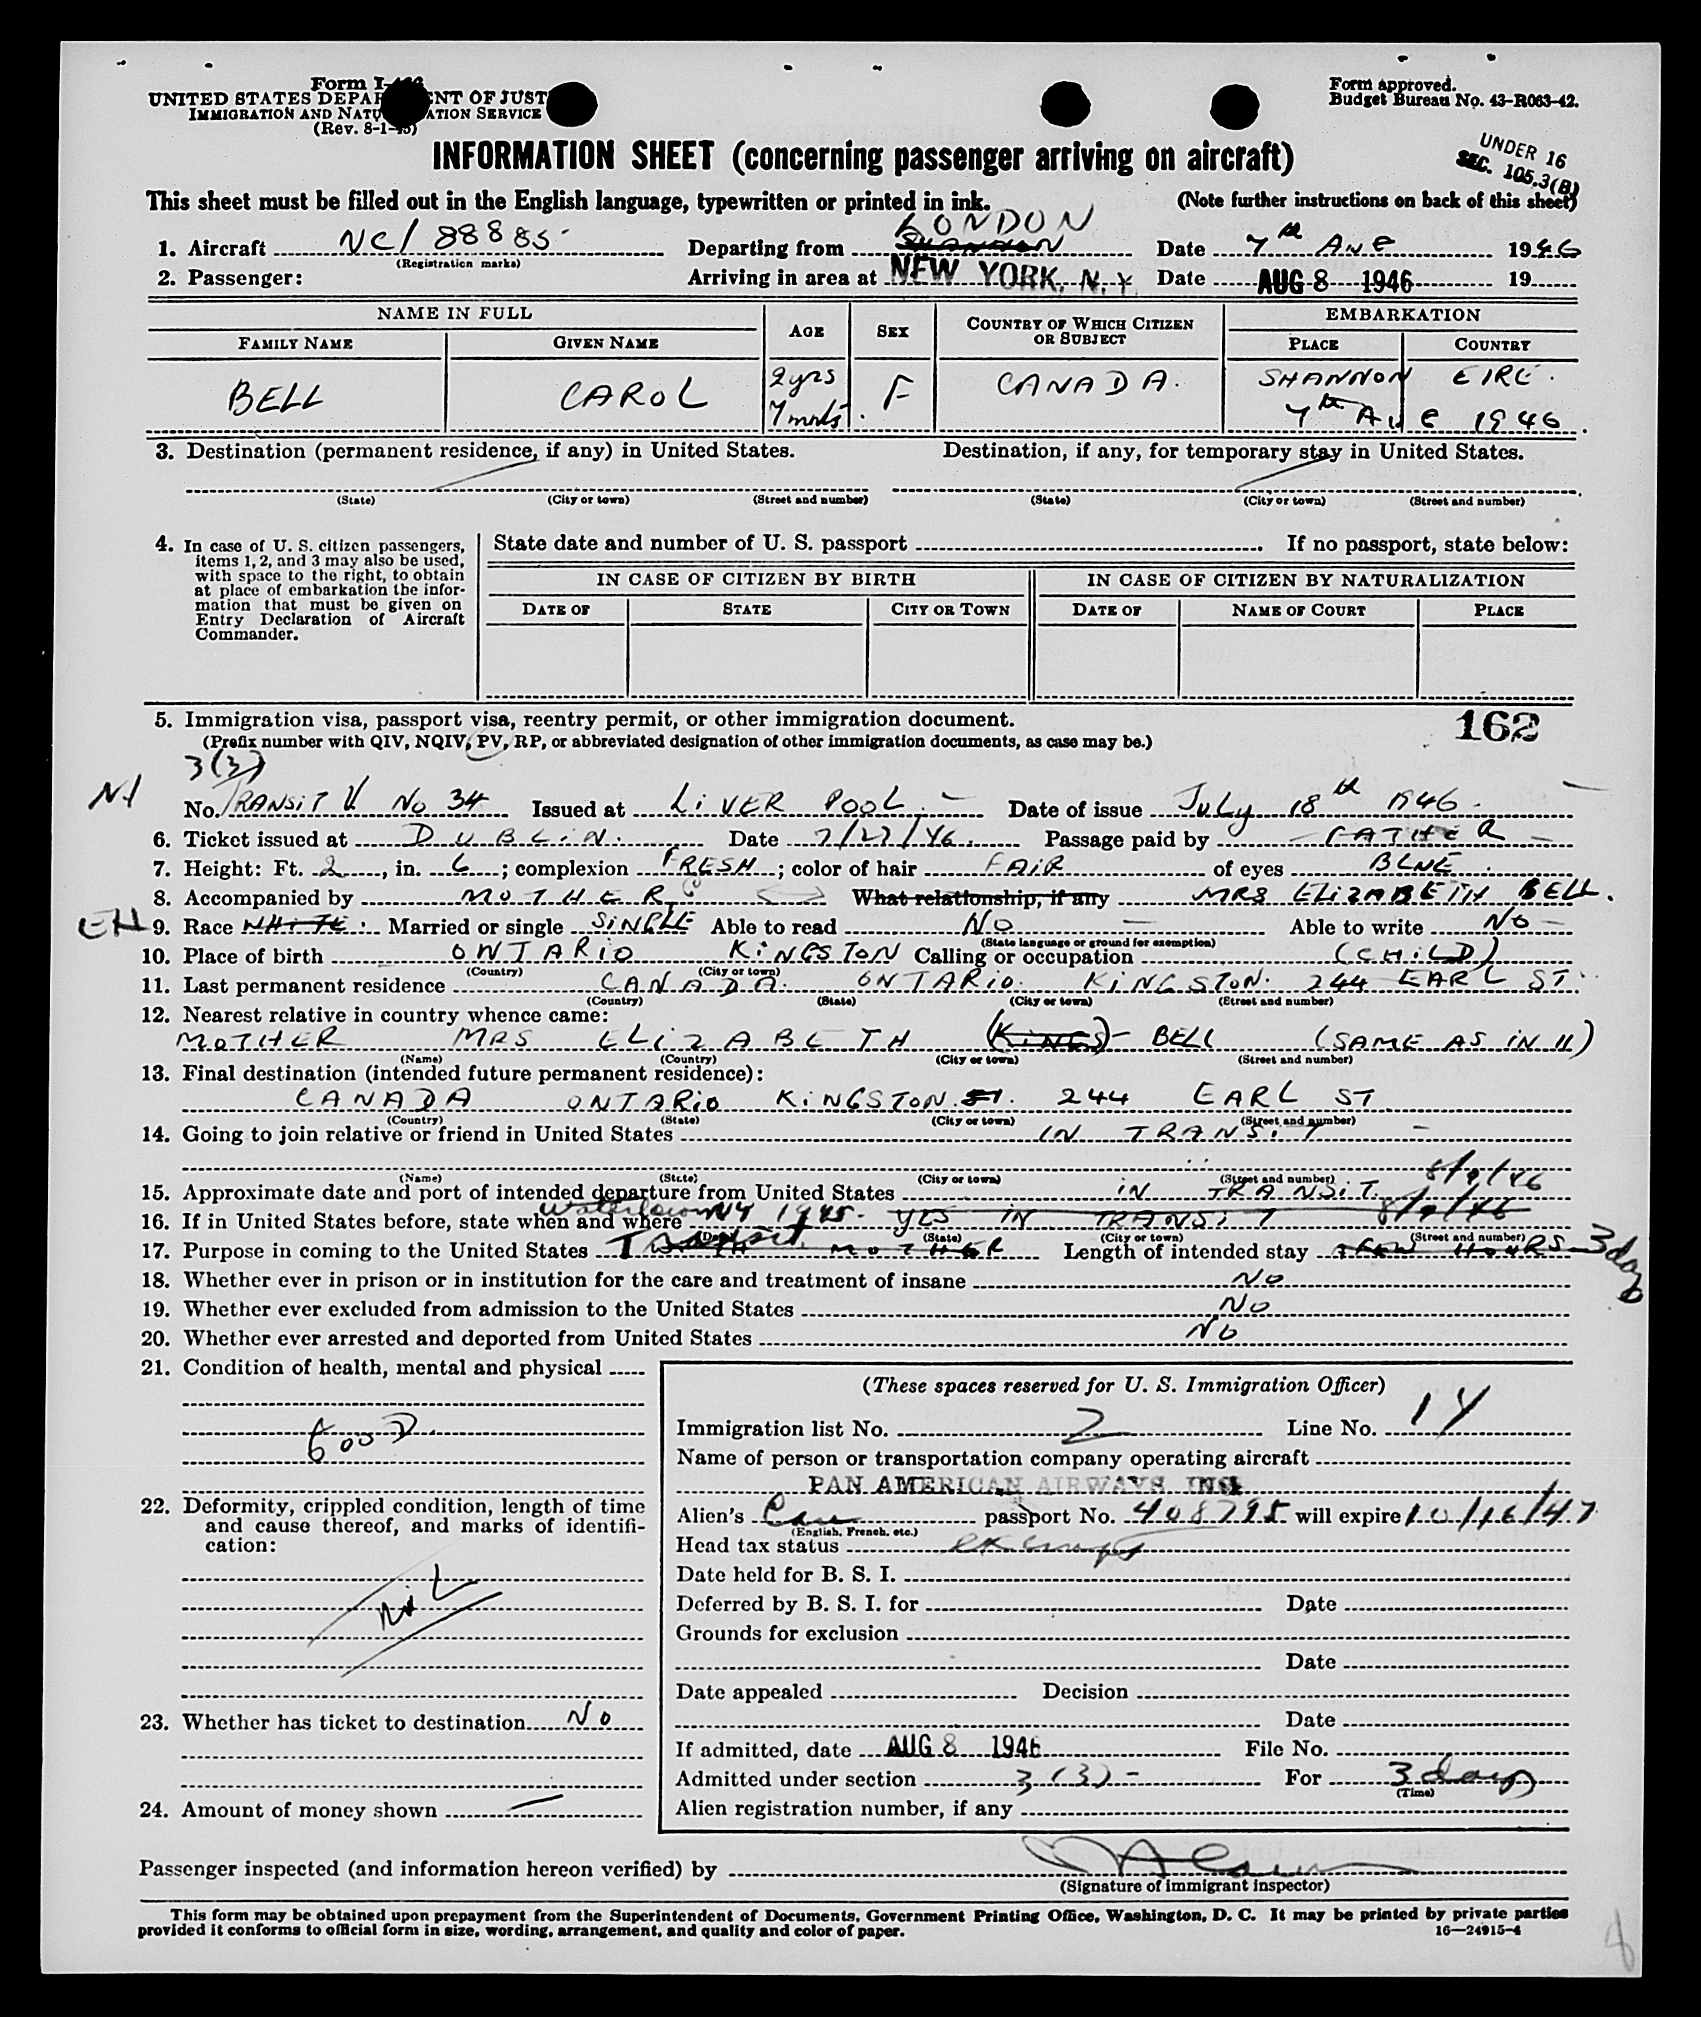 Form I-466
UNITED STATES DEPARTMENT OF JUST
IMMIGRATION AND NATURALIZATION SERVICE
(Rev. 8-1-45)
Form approved.
Budget Bureau No. 43-R063-42.
UNDER 16
SEC. 105.3(B)
INFORMATION SHEET (concerning passenger arriving on aircraft)
This sheet must be filled out in the English language, typewritten or printed in ink. (Note further instructions on back of this sheet)
LONDON
1. Aircraft NC/ 88885 Departing from SHANNON Date 7th Aug 1946
(Registration marks)
2. Passenger: Arriving in area at NEW YORK, N. Y. Date AUG 8 1946 19
NAME IN FULL AGE SEX COUNTRY OF WHICH CITIZEN OR SUBJECT EMBARKATION
FAMILY NAME GIVEN NAME PLACE COUNTRY
BELL CAROL 2 yrs 7 mnts. F CANADA. SHANNON EIRE.
7th AUG 1946.
3. Destination (permanent residence, if any) in United States. Destination, if any, for temporary stay in United States.
(State) (City or town) (Street and number) (State) (City or town) (Street and number)
4. In case of U. S. citizen passengers, items 1, 2, and 3 may also be used, with space to the right, to obtain at place of embarkation the information that must be given on Entry Declaration of Aircraft Commander.
State date and number of U. S. passport . If no passport, state below:
IN CASE OF CITIZEN BY BIRTH IN CASE OF CITIZEN BY NATURALIZATION
DATE OF STATE CITY OR TOWN DATE OF NAME OF COURT PLACE
5. Immigration visa, passport visa, reentry permit, or other immigration document. 162
(Prefix number with QIV, NQIV, PV, RP, or abbreviated designation of other immigration documents, as case may be.)
3(3)
No. TRANSIT V. No 34 Issued at LIVERPOOL. Date of issue July 18th 1946.
6. Ticket issued at DUBLIN. Date 7/27/46. Passage paid by FATHER
7. Height: Ft. 2, in. 6; complexion FRESH; color of hair FAIR of eyes BLUE.
8. Accompanied by MOTHER What relationship, if any MRS ELIZABETH BELL.
9. Race WHITE. Married or single SINGLE Able to read NO Able to write NO
(State language or ground for exemption)
10. Place of birth ONTARIO KINGSTON Calling or occupation (CHILD)
(Country) (City or town)
11. Last permanent residence CANADA. ONTARIO. KINGSTON. 244 EARL ST.
(Country) (State) (City or town) (Street and number)
12. Nearest relative in country whence came:
MOTHER MRS ELIZABETH (KINGS) BELL (SAME AS IN 11)
(Name) (Country) (City or town) (Street and number)
13. Final destination (intended future permanent residence):
CANADA ONTARIO KINGSTON. 244 EARL ST
(Country) (State) (City or town) (Street and number)
14. Going to join relative or friend in United States IN TRANSIT
(Name) (State) (City or town) (Street and number)
15. Approximate date and port of intended departure from United States IN TRANSIT. 8/9/46
16. If in United States before, state when and where Watertown NY 1945. YES IN TRANSIT 8/9/46
(Date) (State) (City or town) (Street and number)
17. Purpose in coming to the United States Transit MOTHER Length of intended stay A FEW HOURS 3 days
18. Whether ever in prison or in institution for the care and treatment of insane NO
19. Whether ever excluded from admission to the United States NO
20. Whether ever arrested and deported from United States NO
21. Condition of health, mental and physical
GOOD.
22. Deformity, crippled condition, length of time and cause thereof, and marks of identification:
NIL
23. Whether has ticket to destination NO
24. Amount of money shown
(These spaces reserved for U. S. Immigration Officer)
Immigration list No. 2 Line No. 14
Name of person or transportation company operating aircraft
PAN AMERICAN AIRWAYS INC.
Alien's Can passport No. 408795 will expire 10/16/47
(English, French, etc.)
Head tax status exempt
Date held for B. S. I.
Deferred by B. S. I. for Date
Grounds for exclusion
Date
Date appealed Decision
Date
If admitted, date AUG 8 1946 File No.
Admitted under section 3(3)- For 3 days
(Time)
Alien registration number, if any
Passenger inspected (and information hereon verified) by
(Signature of immigrant inspector)
This form may be obtained upon prepayment from the Superintendent of Documents, Government Printing Office, Washington, D. C. It may be printed by private parties
provided it conforms to official form in size, wording, arrangement, and quality and color of paper. 16—24915-4
8